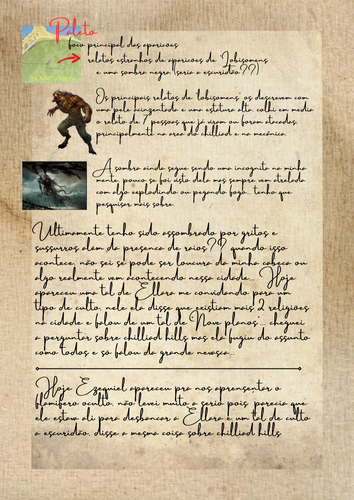 Paleto
foco principal das aparicoes
relatos estranhos de aparicoes de "Lobisomens"
e uma sombra negra (seria a escuridão??)
Os principais relatos de "lobisomens" os descrevem com
uma pele acinzentada e uma estatura alta, colhi em media
o relato de 7 pessoas que já viram ou foram atacadas,
principalmente na area do chilliad e na mecânica.
A sombra ainda segue sendo uma incognita na minha
mente, pouco se foi visto dela mas sempre vem atrelada
com algo explodindo ou pegando fogo... tenho que
pesquisar mais sobre.
Ultimamente tenho sido assombrado por gritos e
sussurros alem da presenca de raios?? quando isso
acontece, não sei se pode ser loucura da minha cabeça ou
algo realmente vem acontecendo nessa cidade... Hoje
apareceu uma tal de Ellara me convidando para um
tipo de culto, nele ela disse que existiam mais 2 religioes
na cidade e falou de um tal de Nove planos... cheguei
a perguntar sobre chilliad hills mas ela fugiu do assunto
como todos e só falou da grande nevasca...
Hoje Ezequiel apareceu pra nos apresentar o
flamifero oculto, não levei muito a serio pois parecia que
ele estava ali para desbancar a Ellara e um tal de culto
a escuridão, disse a mesma coisa sobre chilliad hills